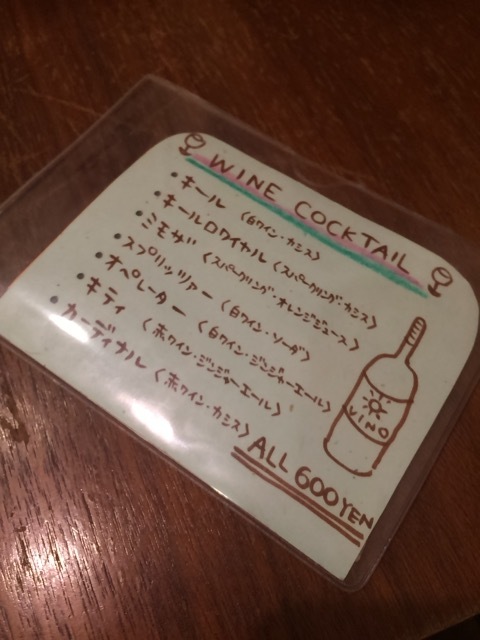 WINE COCKTAIL
・キール〈白ワイン・カシス〉
・キールロワイヤル〈スパークリング・カシス〉
・ミモザ〈スパークリング・オレンジジュース〉
・スプリッツァー〈白ワイン・ソーダ〉
・オペレーター〈白ワイン・ジンジャーエール〉
・キティ〈赤ワイン・ジンジャーエール〉
・カーディナル〈赤ワイン・カシス〉
VINO
ALL 600YEN